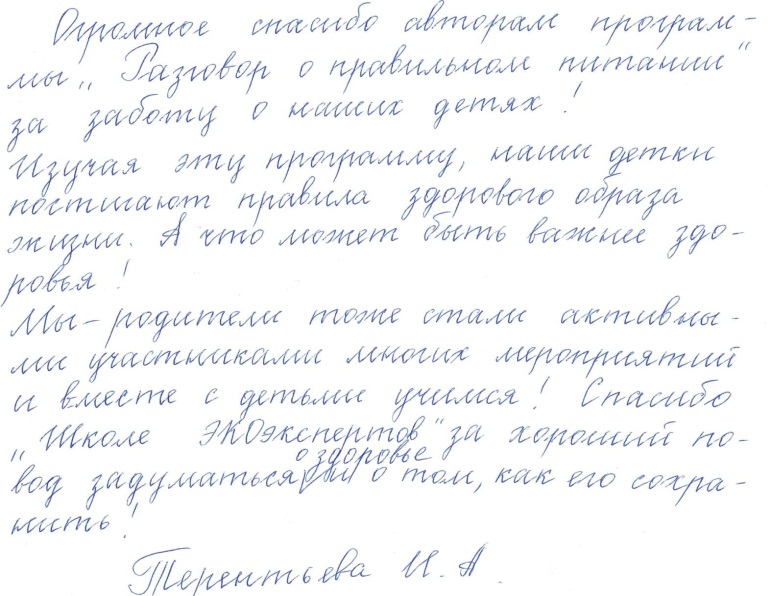 Огромное спасибо авторам програм-
мы „Разговор о правильном питании"
за заботу о наших детях!
Изучая эту программу, наши детки
постигают правила здорового образа
жизни. А что может быть важнее здо-
ровья!
Мы - родители тоже стали активны-
ми участниками многих мероприятий
и вместе с детьми учимся! Спасибо
„Школе ЭКОэкспертов" за хороший по-
о здоровье
вод задуматься и о том, как его сохра-
нить!
Терентьева И. А.